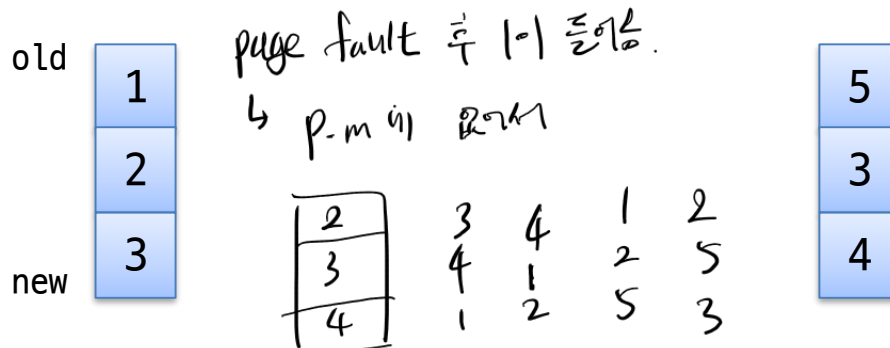 old
1
2
3
new
page fault 후 1이 들어옴.
↳ p-m에 없어서
2 3 4 1 2
3 4 1 2 5
4 1 2 5 3
5
3
4